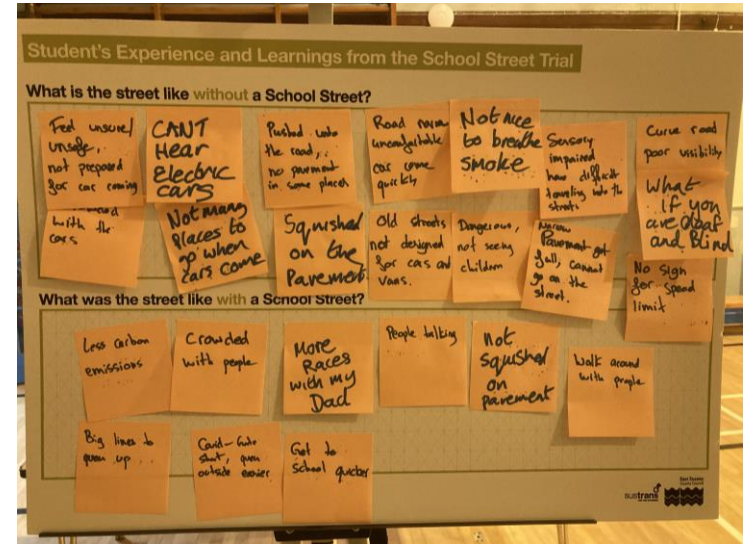 Student's Experience and Learnings from the School Street Trial
What is the street like without a School Street?
Feel unsure/
unsafe,
not prepared
for car coming
CANT
Hear
Electric
cars
Pushed into
the road,
no pavement
in some places
Road narrow
uncomfortable
car come
quickly
Not nice
to breathe
smoke
Sensory
impaired
have difficult
traveling into the
streets
Curve road
poor visibility
with the
cars
Not many
Places to
go when
cars come
Squished
on the
Pavement.
Old streets
not designed
for cars and
vans.
Dangerous,
not seeing
children
Narrow
Pavement get
full, cannot
go on the
street.
What
if you
are deaf
and Blind
No sign
for speed
limit
What was the street like with a School Street?
Less carbon
emissions
Crowded
with people
More
Races
with my
Dad
People talking
not
Squished
on
pavement
Walk around
with people
Big lines to
queue up
Covid-
start, queue
outside easier
Get to
school quicker
sustrans
East Sussex
County Council